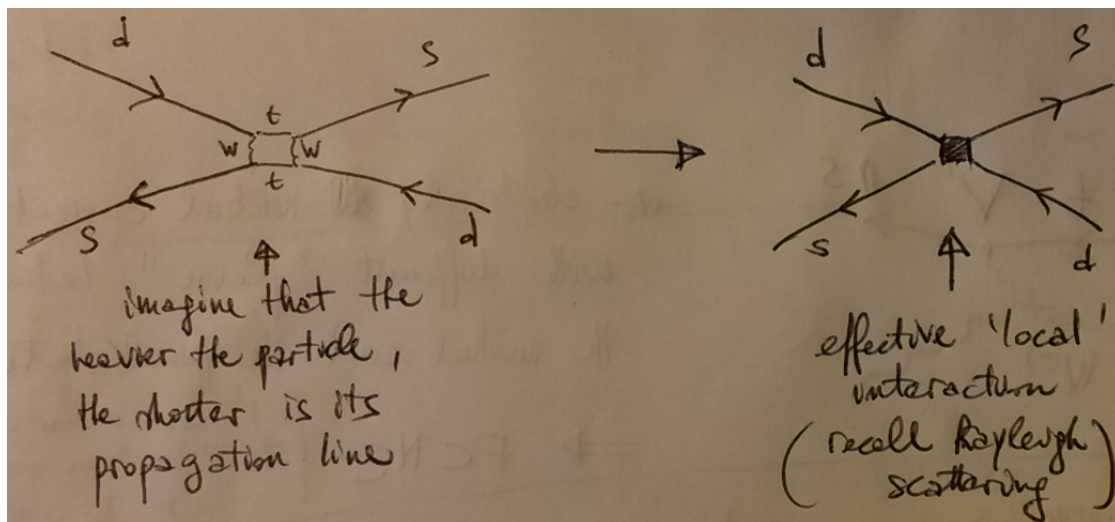 d
S
t
W
W
t
S
d
imagine that the
heavier the particle,
the shorter is its
propagation line
d
S
S
d
effective 'local'
interaction
(recall Rayleigh
scattering)